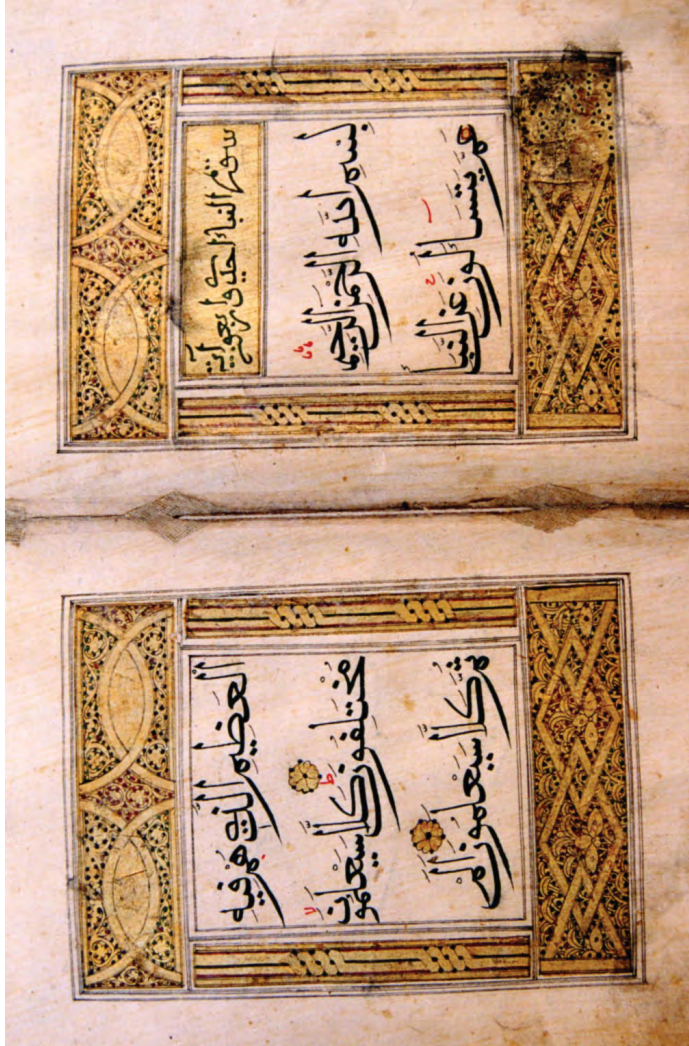 سورة النبأ احدى واربعون آية
بِسْمِ اللَّهِ الرَّحْمَنِ الرَّحِيمِ
عَمَّ يَتَسَاءَلُونَ عَنِ النَّبَأِ
الْعَظِيمِ الَّذِي هُمْ فِيهِ
مُخْتَلِفُونَ كَلَّا سَيَعْلَمُونَ
ثُمَّ كَلَّا سَيَعْلَمُونَ أَلَمْ